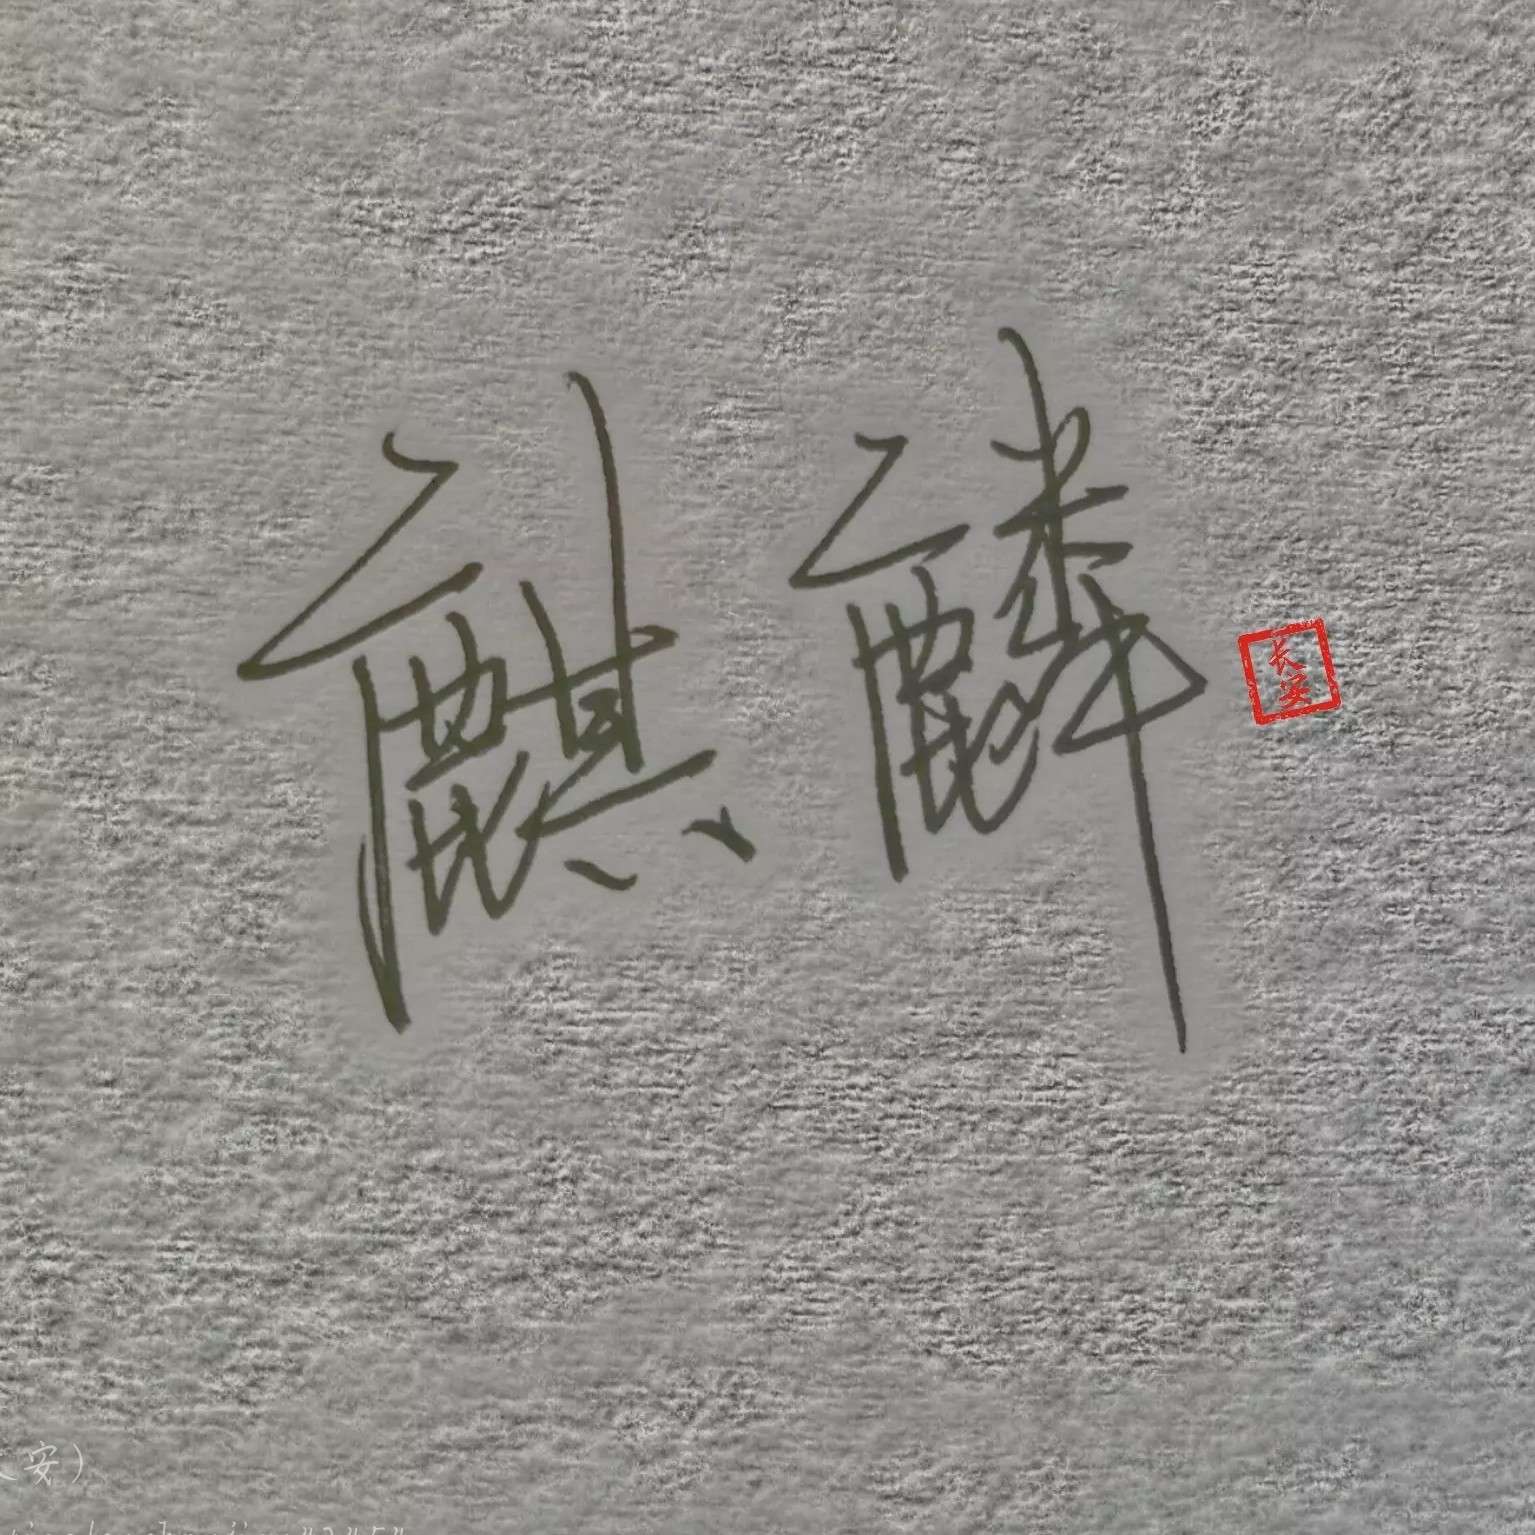 麒麟
长安
安)